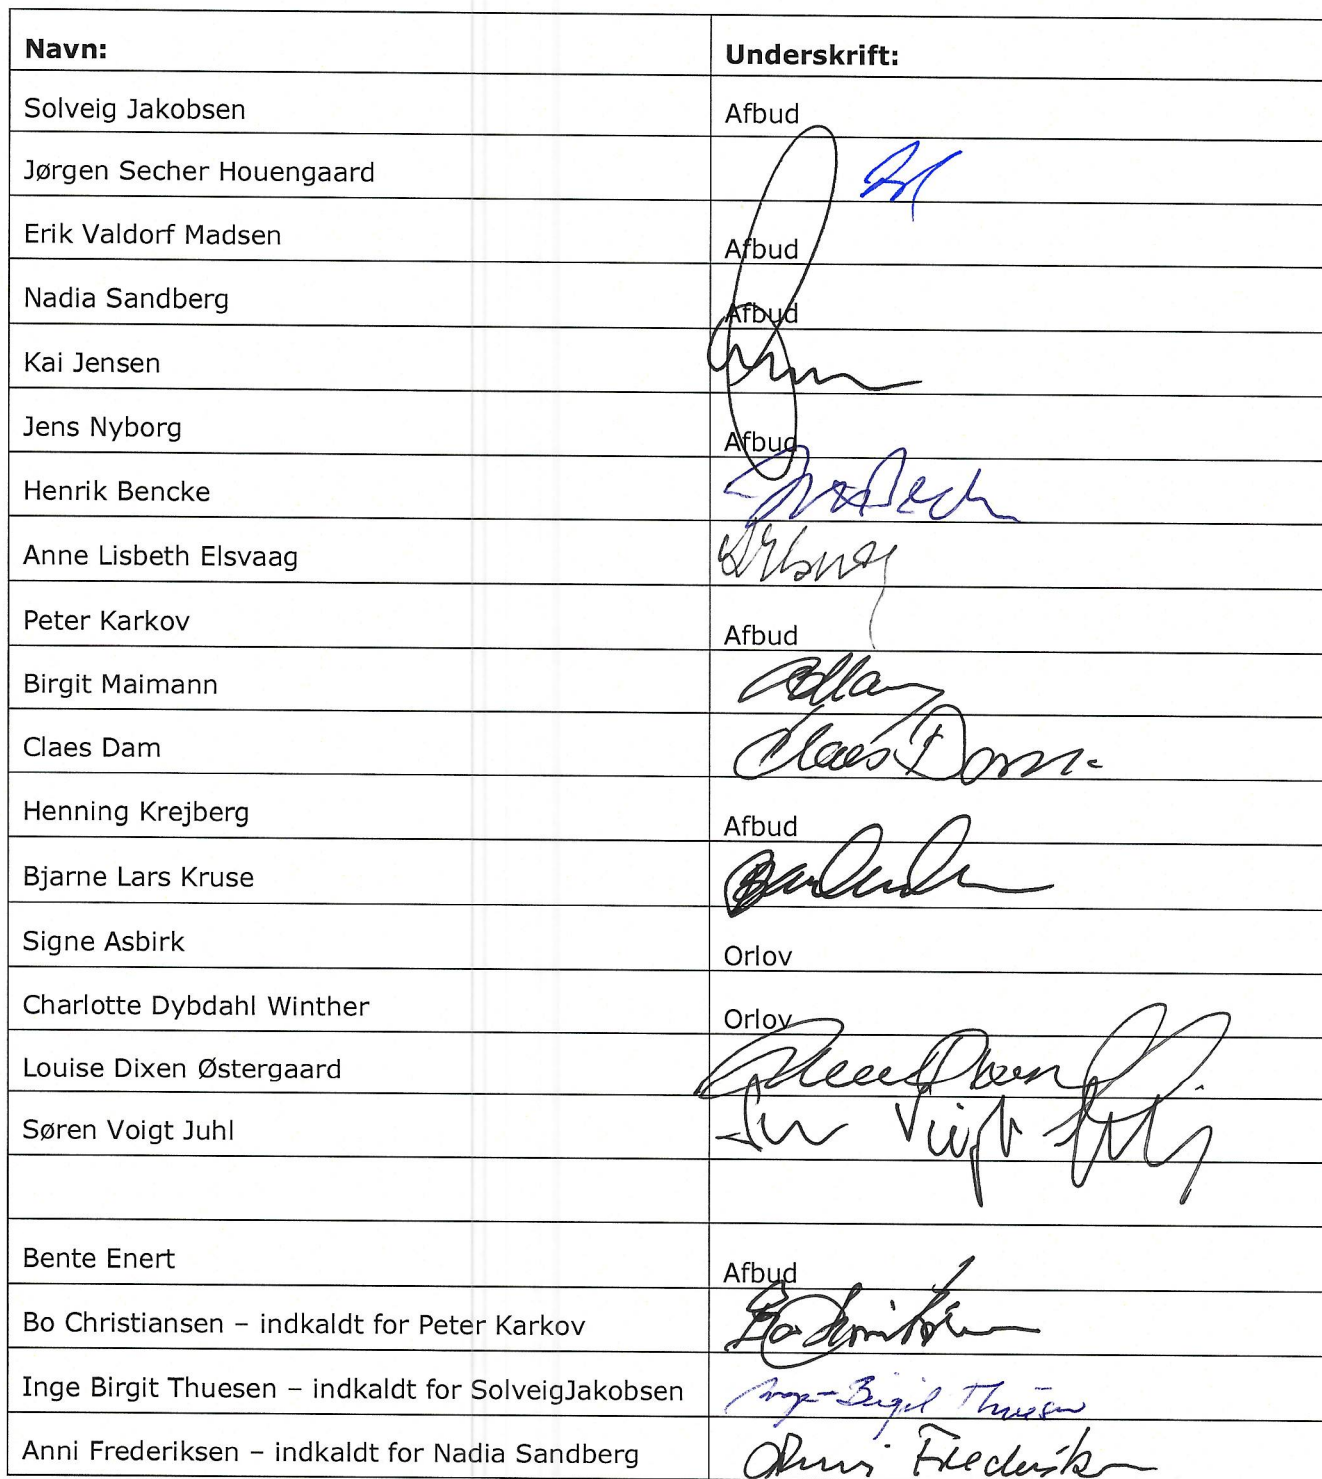 Navn: Underskrift:
Solveig Jakobsen Afbud
Jørgen Secher Houengaard
Erik Valdorf Madsen Afbud
Nadia Sandberg Afbud
Kai Jensen
Jens Nyborg Afbud
Henrik Bencke
Anne Lisbeth Elsvaag
Peter Karkov Afbud
Birgit Maimann
Claes Dam Claes Dam
Henning Krejberg Afbud
Bjarne Lars Kruse
Signe Asbirk Orlov
Charlotte Dybdahl Winther Orlov
Louise Dixen Østergaard
Søren Voigt Juhl Voigt
Bente Enert Afbud
Bo Christiansen – indkaldt for Peter Karkov Bo
Inge Birgit Thuesen – indkaldt for SolveigJakobsen Inge-Birgit Thuesen
Anni Frederiksen – indkaldt for Nadia Sandberg Anni Frederiksen